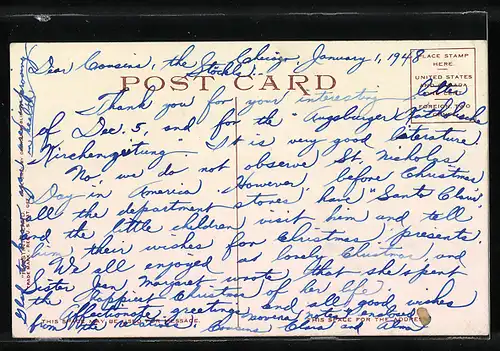 Chicago, January 1, 1948
Dear Cousins, the Stöckls!
POST CARD
PLACE STAMP
HERE
UNITED STATES
Thank you for your interesting letter
of Dec. 5, and for the "Augsburger Katholische
Kirchenzeitung". It is very good literature
No, we do not observe St. Nicholas
Day in America. However, before Christmas
all the department stores have "Santa Claus",
and the little children visit him and tell
him their wishes for Christmas presents.
We all enjoyed a lovely Christmas, and
sister Jean Margaret wrote that she spent
the happiest Christmas of her life.
Affectionate greetings and all good wishes
from the
novena notes enclosed
Cousins Clara and Alma
THIS SPACE MAY BE USED FOR MESSAGE.
THIS SPACE FOR THE ADDRESS
Glad to hear you are improving
in health.